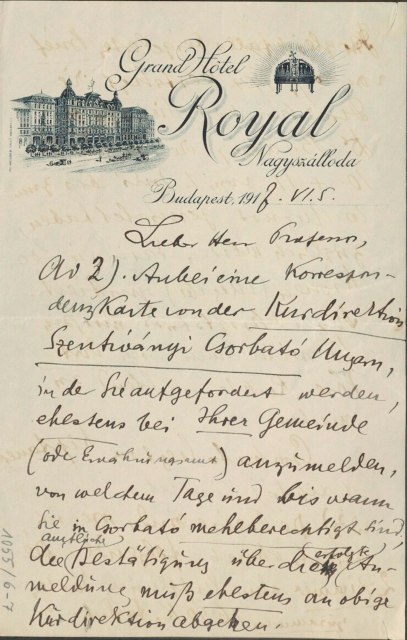 Grand Hôtel
Royal
Nagyszálloda
Budapest, 1917. VI. 5.
Lieber Herr Professor,
Ad 2). Anbei eine Korrespon-
denzkarte von der Kurdirektion
Szentiványi Csorbató Ungarn,
in der Sie aufgefordert werden,
ehestens bei Ihrer Gemeinde
(oder Ernährungsamt) anzumelden,
von welchem Tage und bis wann
Sie in Csorbató mehlberechtigt sind,
die amtliche Bestätigung über die erfolgte An-
meldung muß ehestens an obige
Kurdirektion abgehen.
1055/6-7